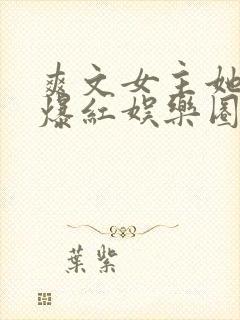 爽文女主她
爆紅娛樂圈
葉紫